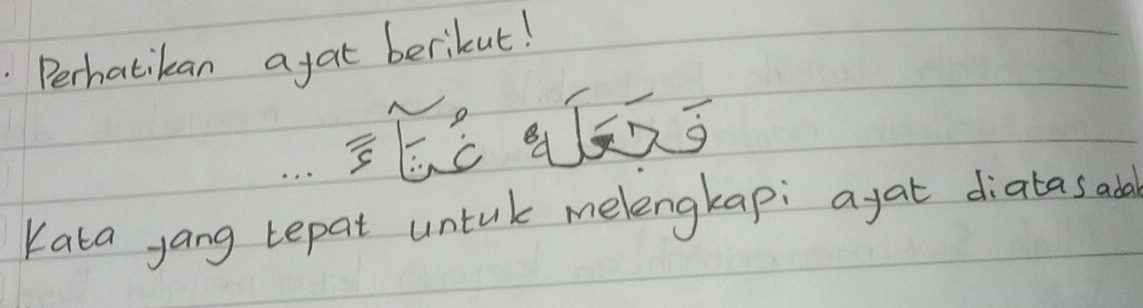 . Perhatikan ayat berikut!
فَجَعَلَهٗ غُثَاۤءً ...
Kata yang tepat untuk melengkapi ayat diatas adal